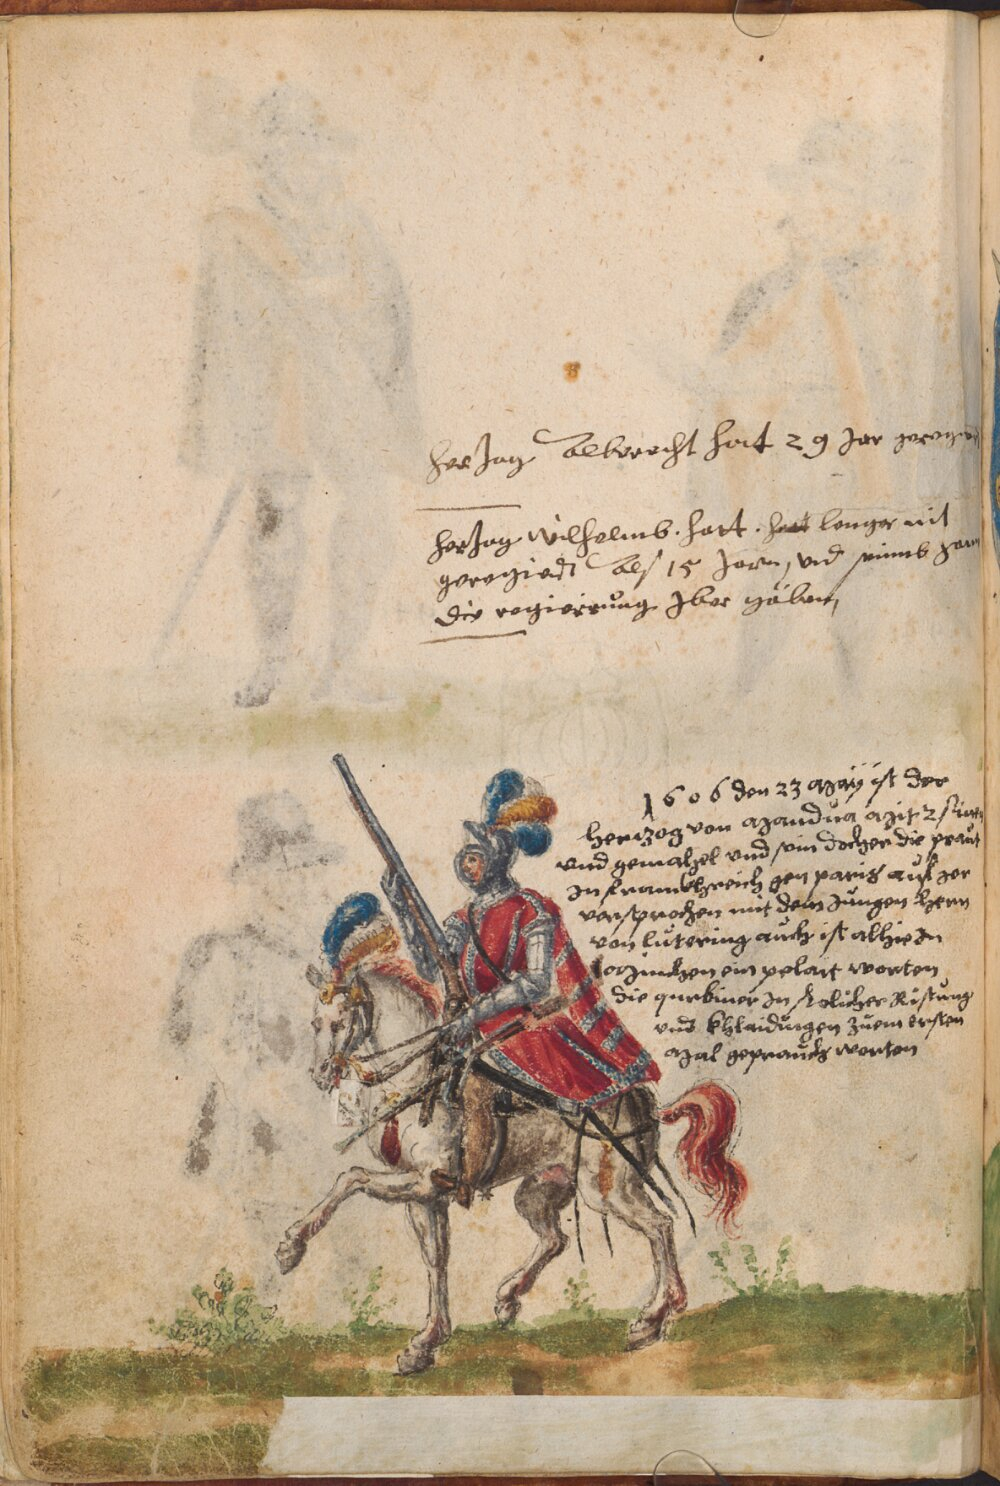 herzog Albrecht hat 29 Jar geregiert
herzog wilhelmb. hatt. hatt lenger nit
geregierdt Als 15 Jarn, vnd seinnb
die regierrung yber gäben,
1606 den 23 Maÿ ist der
hertzog von Mandua Mit 2 Sinen
vnd gemahel vnd sein dochter die praut
In frankhreich gen paris auf her
versprochen mit dem Jungen hern
von lutering auch ist alhie In
Minchen ein pelait worten
die qurbiner In solicher Ristung
vnd khlaidungen zuem ersten
Mal gepraucht worten